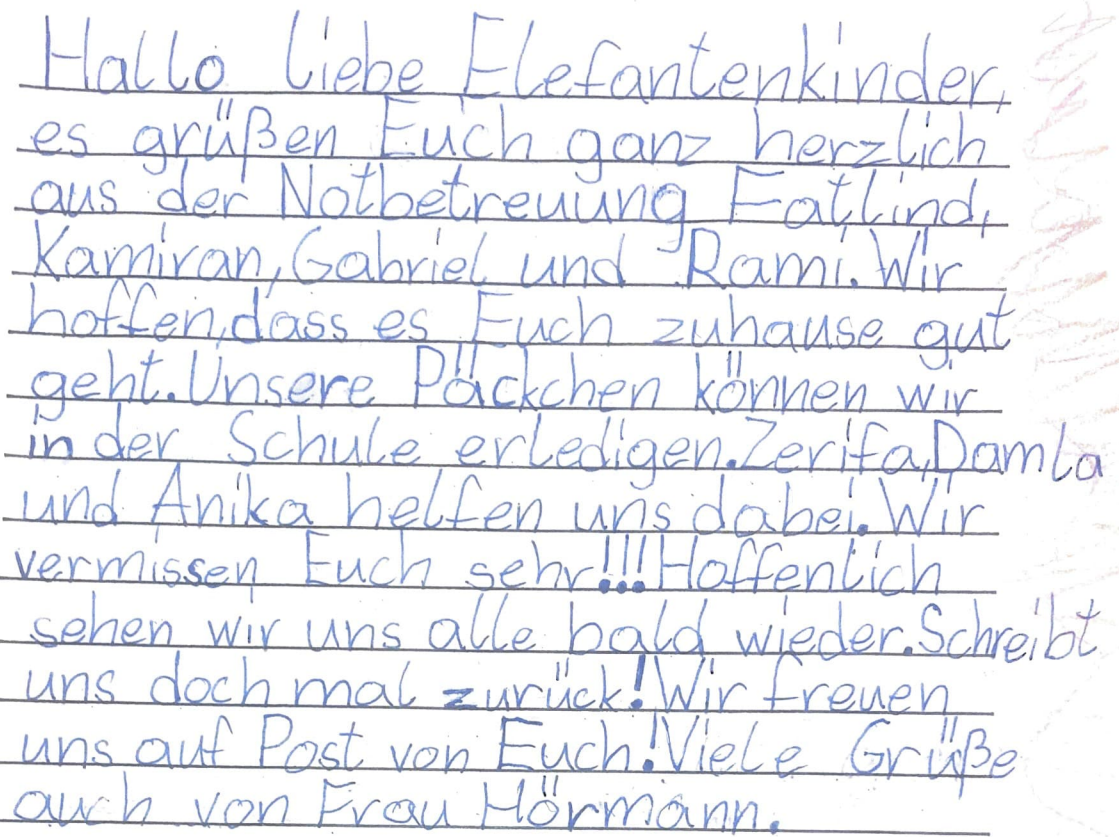 Hallo liebe Elefantenkinder,
es grüßen Euch ganz herzlich
aus der Notbetreuung Fatlind,
Kamiran, Gabriel und Rami. Wir
hoffen, dass es Euch zuhause gut
geht. Unsere Päckchen können wir
in der Schule erledigen. Zerifa, Damla
und Anika helfen uns dabei. Wir
vermissen Euch sehr!!! Hoffentlich
sehen wir uns alle bald wieder. Schreibt
uns doch mal zurück! Wir freuen
uns auf Post von Euch! Viele Grüße
auch von Frau Hörmann.